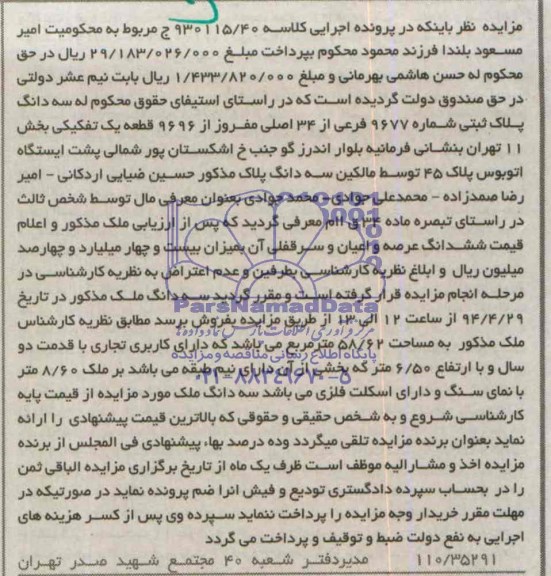 مزایده نظر باینکه در پرونده اجرایی کلاسه ۹۳۰۱۱۵/۴۰ ج مربوط به محکومیت امیر
مسعود بلندا فرزند محمود محکوم بپرداخت مبلغ ۲۹/۱۸۳/۰۲۶/۰۰۰ ریال در حق
محکوم له حسن هاشمی بهرمانی و مبلغ ۱/۴۳۳/۸۲۰/۰۰۰ ریال بابت نیم عشر دولتی
در حق صندوق دولت گردیده است که در راستای استیفای حقوق محکوم له سه دانگ
پلاک ثبتی شماره ۹۶۷۷ فرعی از ۳۴ اصلی مفروز از ۹۶۹۶ قطعه یک تفکیکی بخش
۱۱ تهران بنشانی فرمانیه بلوار اندرز گو جنب خ اشکستان پور شمالی پشت ایستگاه
اتوبوس پلاک ۴۵ توسط مالکین سه دانگ پلاک مذکور حسین ضیایی اردکانی - امیر
رضا صمدزاده - محمدعلی جوادی - محمد جوادی بعنوان معرفی مال توسط شخص ثالث
در راستای تبصره ماده ۳۴ ق اام معرفی گردید که پس از ارزیابی ملک مذکور و اعلام
قیمت ششدانگ عرصه و اعیان و سرقفلی آن بمیزان بیست و چهار میلیارد و چهارصد
میلیون ریال و ابلاغ نظریه کارشناسی بطرفین و عدم اعتراض به نظریه کارشناسی در
مرحله انجام مزایده قرار گرفته است و مقرر گردید سه دانگ ملک مذکور در تاریخ
۹۴/۴/۲۹ از ساعت ۱۲ الی ۱۳ از طریق مزایده بفروش برسد مطابق نظریه کارشناس
ملک مذکور به مساحت ۵۸/۶۲ مترمربع می باشد که دارای کاربری تجاری با قدمت دو
سال و با ارتفاع ۶/۵۰ متر که بخشی از آن دارای نیم طبقه می باشد بر ملک ۸/۶۰ متر
با نمای سنگ و دارای اسکلت فلزی می باشد سه دانگ ملک مورد مزایده از قیمت پایه
کارشناسی شروع و به شخص حقیقی و حقوقی که بالاترین قیمت پیشنهادی را ارائه
نماید بعنوان برنده مزایده تلقی میگردد وده درصد بهاء پیشنهادی فی المجلس از برنده
مزایده اخذ و مشارالیه موظف است ظرف یک ماه از تاریخ برگزاری مزایده الباقی ثمن
را در بحساب سپرده دادگستری تودیع و فیش انرا ضم پرونده نماید در صورتیکه در
مهلت مقرر خریدار وجه مزایده را پرداخت ننماید سپرده وی پس از کسر هزینه های
اجرایی به نفع دولت ضبط و توقیف و پرداخت می گردد
۱۱۰/۳۵۲۹۱ مدیردفتر شعبه ۴۰ مجتمع شهید صدر تهران
ParsNamadData
پایگاه اطلاع رسانی مناقصه و مزایده
۰۲۱-۸۸۳۴۹۶۷۰-۵